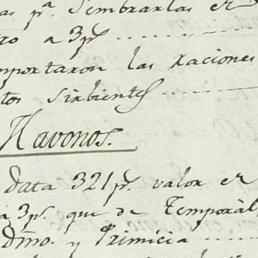 as p.ª Sembrarlas el
ro a 3p.s
mportaron las raciones
tos sirbientes
Havonos.
data 321p.s valor de
a 3p.s que de Temporàl
Dmo. y Primicia